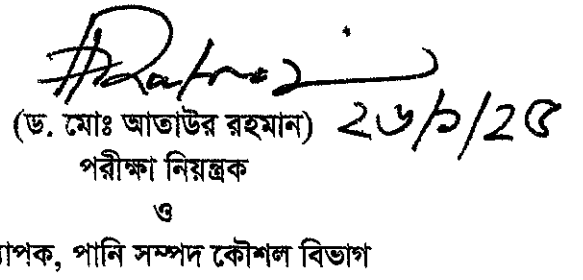 (ড. মোঃ আতাউর রহমান) ২৬/১/২৫
পরীক্ষা নিয়ন্ত্রক
ও
পানি সম্পদ কৌশল বিভাগ